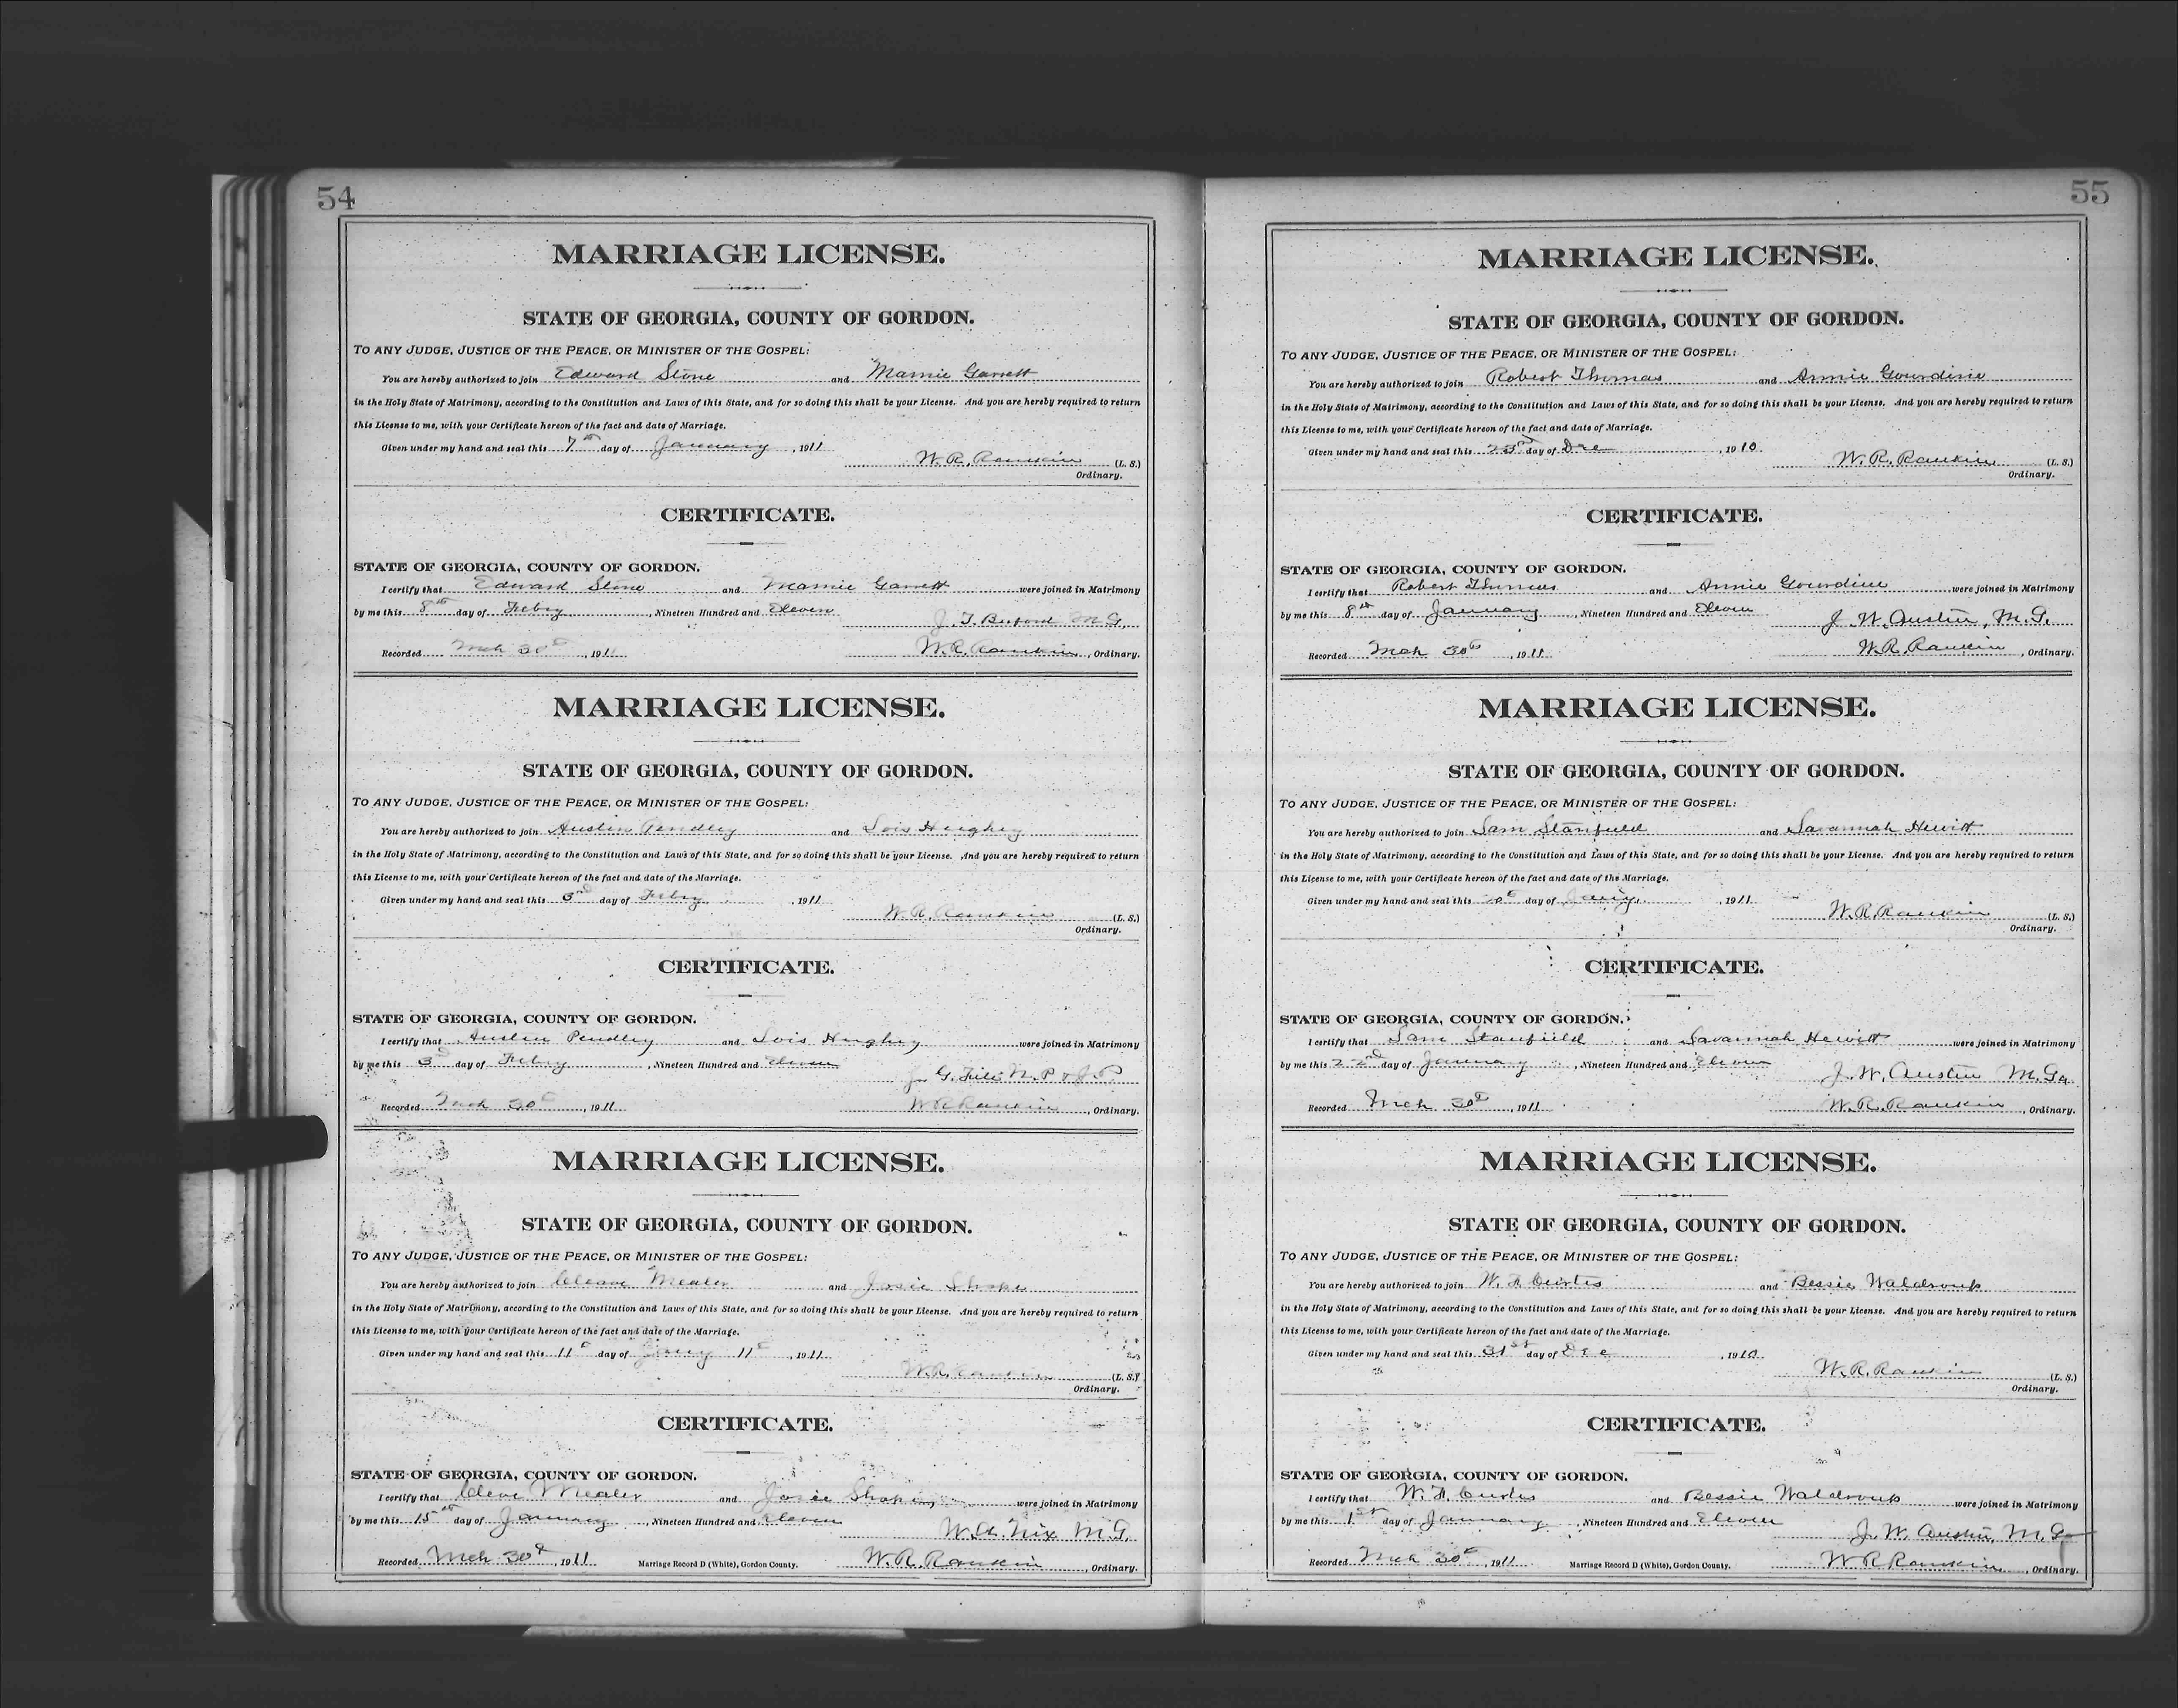 54
MARRIAGE LICENSE.
STATE OF GEORGIA, COUNTY OF GORDON.
TO ANY JUDGE, JUSTICE OF THE PEACE, OR MINISTER OF THE GOSPEL:
You are hereby authorized to join Edward Stone and Mamie Garrett
in the Holy State of Matrimony, according to the Constitution and Laws of this State, and for so doing this shall be your License. And you are hereby required to return
this License to me, with your Certificate hereon of the fact and date of Marriage.
Given under my hand and seal this 7th day of January, 1911
W. R. Rankin (L. S.)
Ordinary.
CERTIFICATE.
STATE OF GEORGIA, COUNTY OF GORDON.
I certify that Edward Stone and Mamie Garrett were joined in Matrimony
by me this 8th day of Febry, Nineteen Hundred and Eleven
J. T. Buford M.G.
Recorded Mch 30th, 1911 W. R. Rankin, Ordinary.
MARRIAGE LICENSE.
STATE OF GEORGIA, COUNTY OF GORDON.
TO ANY JUDGE, JUSTICE OF THE PEACE, OR MINISTER OF THE GOSPEL:
You are hereby authorized to join Austin Pendley and Lois Hughey
in the Holy State of Matrimony, according to the Constitution and Laws of this State, and for so doing this shall be your License. And you are hereby required to return
this License to me, with your Certificate hereon of the fact and date of the Marriage.
Given under my hand and seal this 3rd day of Febry, 1911
W. R. Rankin (L. S.)
Ordinary.
CERTIFICATE.
STATE OF GEORGIA, COUNTY OF GORDON.
I certify that Austin Pendley and Lois Hughey were joined in Matrimony
by me this 3rd day of Febry, Nineteen Hundred and Eleven
J. G. N. P & J. P.
Recorded Mch 30th, 1911 W R Rankin, Ordinary.
MARRIAGE LICENSE.
STATE OF GEORGIA, COUNTY OF GORDON.
TO ANY JUDGE, JUSTICE OF THE PEACE, OR MINISTER OF THE GOSPEL:
You are hereby authorized to join Cleave Mealer and Josie
in the Holy State of Matrimony, according to the Constitution and Laws of this State, and for so doing this shall be your License. And you are hereby required to return
this License to me, with your Certificate hereon of the fact and date of the Marriage.
Given under my hand and seal this 11th day of Jany 11th, 1911
W. R. Rankin (L. S.)
Ordinary.
CERTIFICATE.
STATE OF GEORGIA, COUNTY OF GORDON.
I certify that Cleve Mealer and Josie were joined in Matrimony
by me this 15th day of January, Nineteen Hundred and Eleven
W. A. Nix M. G.
Recorded Mch 30th, 1911 Marriage Record D (White), Gordon County. W. R. Rankin, Ordinary.
55
MARRIAGE LICENSE.
STATE OF GEORGIA, COUNTY OF GORDON.
TO ANY JUDGE, JUSTICE OF THE PEACE, OR MINISTER OF THE GOSPEL:
You are hereby authorized to join Robert Thomas and Annie Gourdine
in the Holy State of Matrimony, according to the Constitution and Laws of this State, and for so doing this shall be your License. And you are hereby required to return
this License to me, with your Certificate hereon of the fact and date of Marriage.
Given under my hand and seal this day of Dec, 1910.
W. R. Rankin (L. S.)
Ordinary.
CERTIFICATE.
STATE OF GEORGIA, COUNTY OF GORDON.
I certify that Robert Thomas and Annie Gourdine were joined in Matrimony
by me this 8th day of January, Nineteen Hundred and Eleven
J. W. Austin, M. G.
Recorded Mch 30th, 1911. W. R. Rankin, Ordinary.
MARRIAGE LICENSE.
STATE OF GEORGIA, COUNTY OF GORDON.
TO ANY JUDGE, JUSTICE OF THE PEACE, OR MINISTER OF THE GOSPEL:
You are hereby authorized to join Sam Stanfield and Savannah Hewitt
in the Holy State of Matrimony, according to the Constitution and Laws of this State, and for so doing this shall be your License. And you are hereby required to return
this License to me, with your Certificate hereon of the fact and date of the Marriage.
Given under my hand and seal this day of Jany, 1911.
W. R. Rankin (L. S.)
Ordinary.
CERTIFICATE.
STATE OF GEORGIA, COUNTY OF GORDON.
I certify that Sam Stanfield and Savannah Hewitt were joined in Matrimony
by me this 22nd day of January, Nineteen Hundred and Eleven
J. W. Austin M. G.
Recorded Mch 30th, 1911 W. R. Rankin, Ordinary.
MARRIAGE LICENSE.
STATE OF GEORGIA, COUNTY OF GORDON.
TO ANY JUDGE, JUSTICE OF THE PEACE, OR MINISTER OF THE GOSPEL:
You are hereby authorized to join W. H Curtis and Bessie Waldroup
in the Holy State of Matrimony, according to the Constitution and Laws of this State, and for so doing this shall be your License. And you are hereby required to return
this License to me, with your Certificate hereon of the fact and date of the Marriage.
Given under my hand and seal this 31st day of Dec, 1910
W. R. Rankin (L. S.)
Ordinary.
CERTIFICATE.
STATE OF GEORGIA, COUNTY OF GORDON.
I certify that W. H. Curtis and Bessie Waldroup were joined in Matrimony
by me this 1st day of January, Nineteen Hundred and Eleven
J. W. Austin, M. G.
Recorded Mch 30th, 1911 Marriage Record D (White), Gordon County. W. R Rankin, Ordinary.